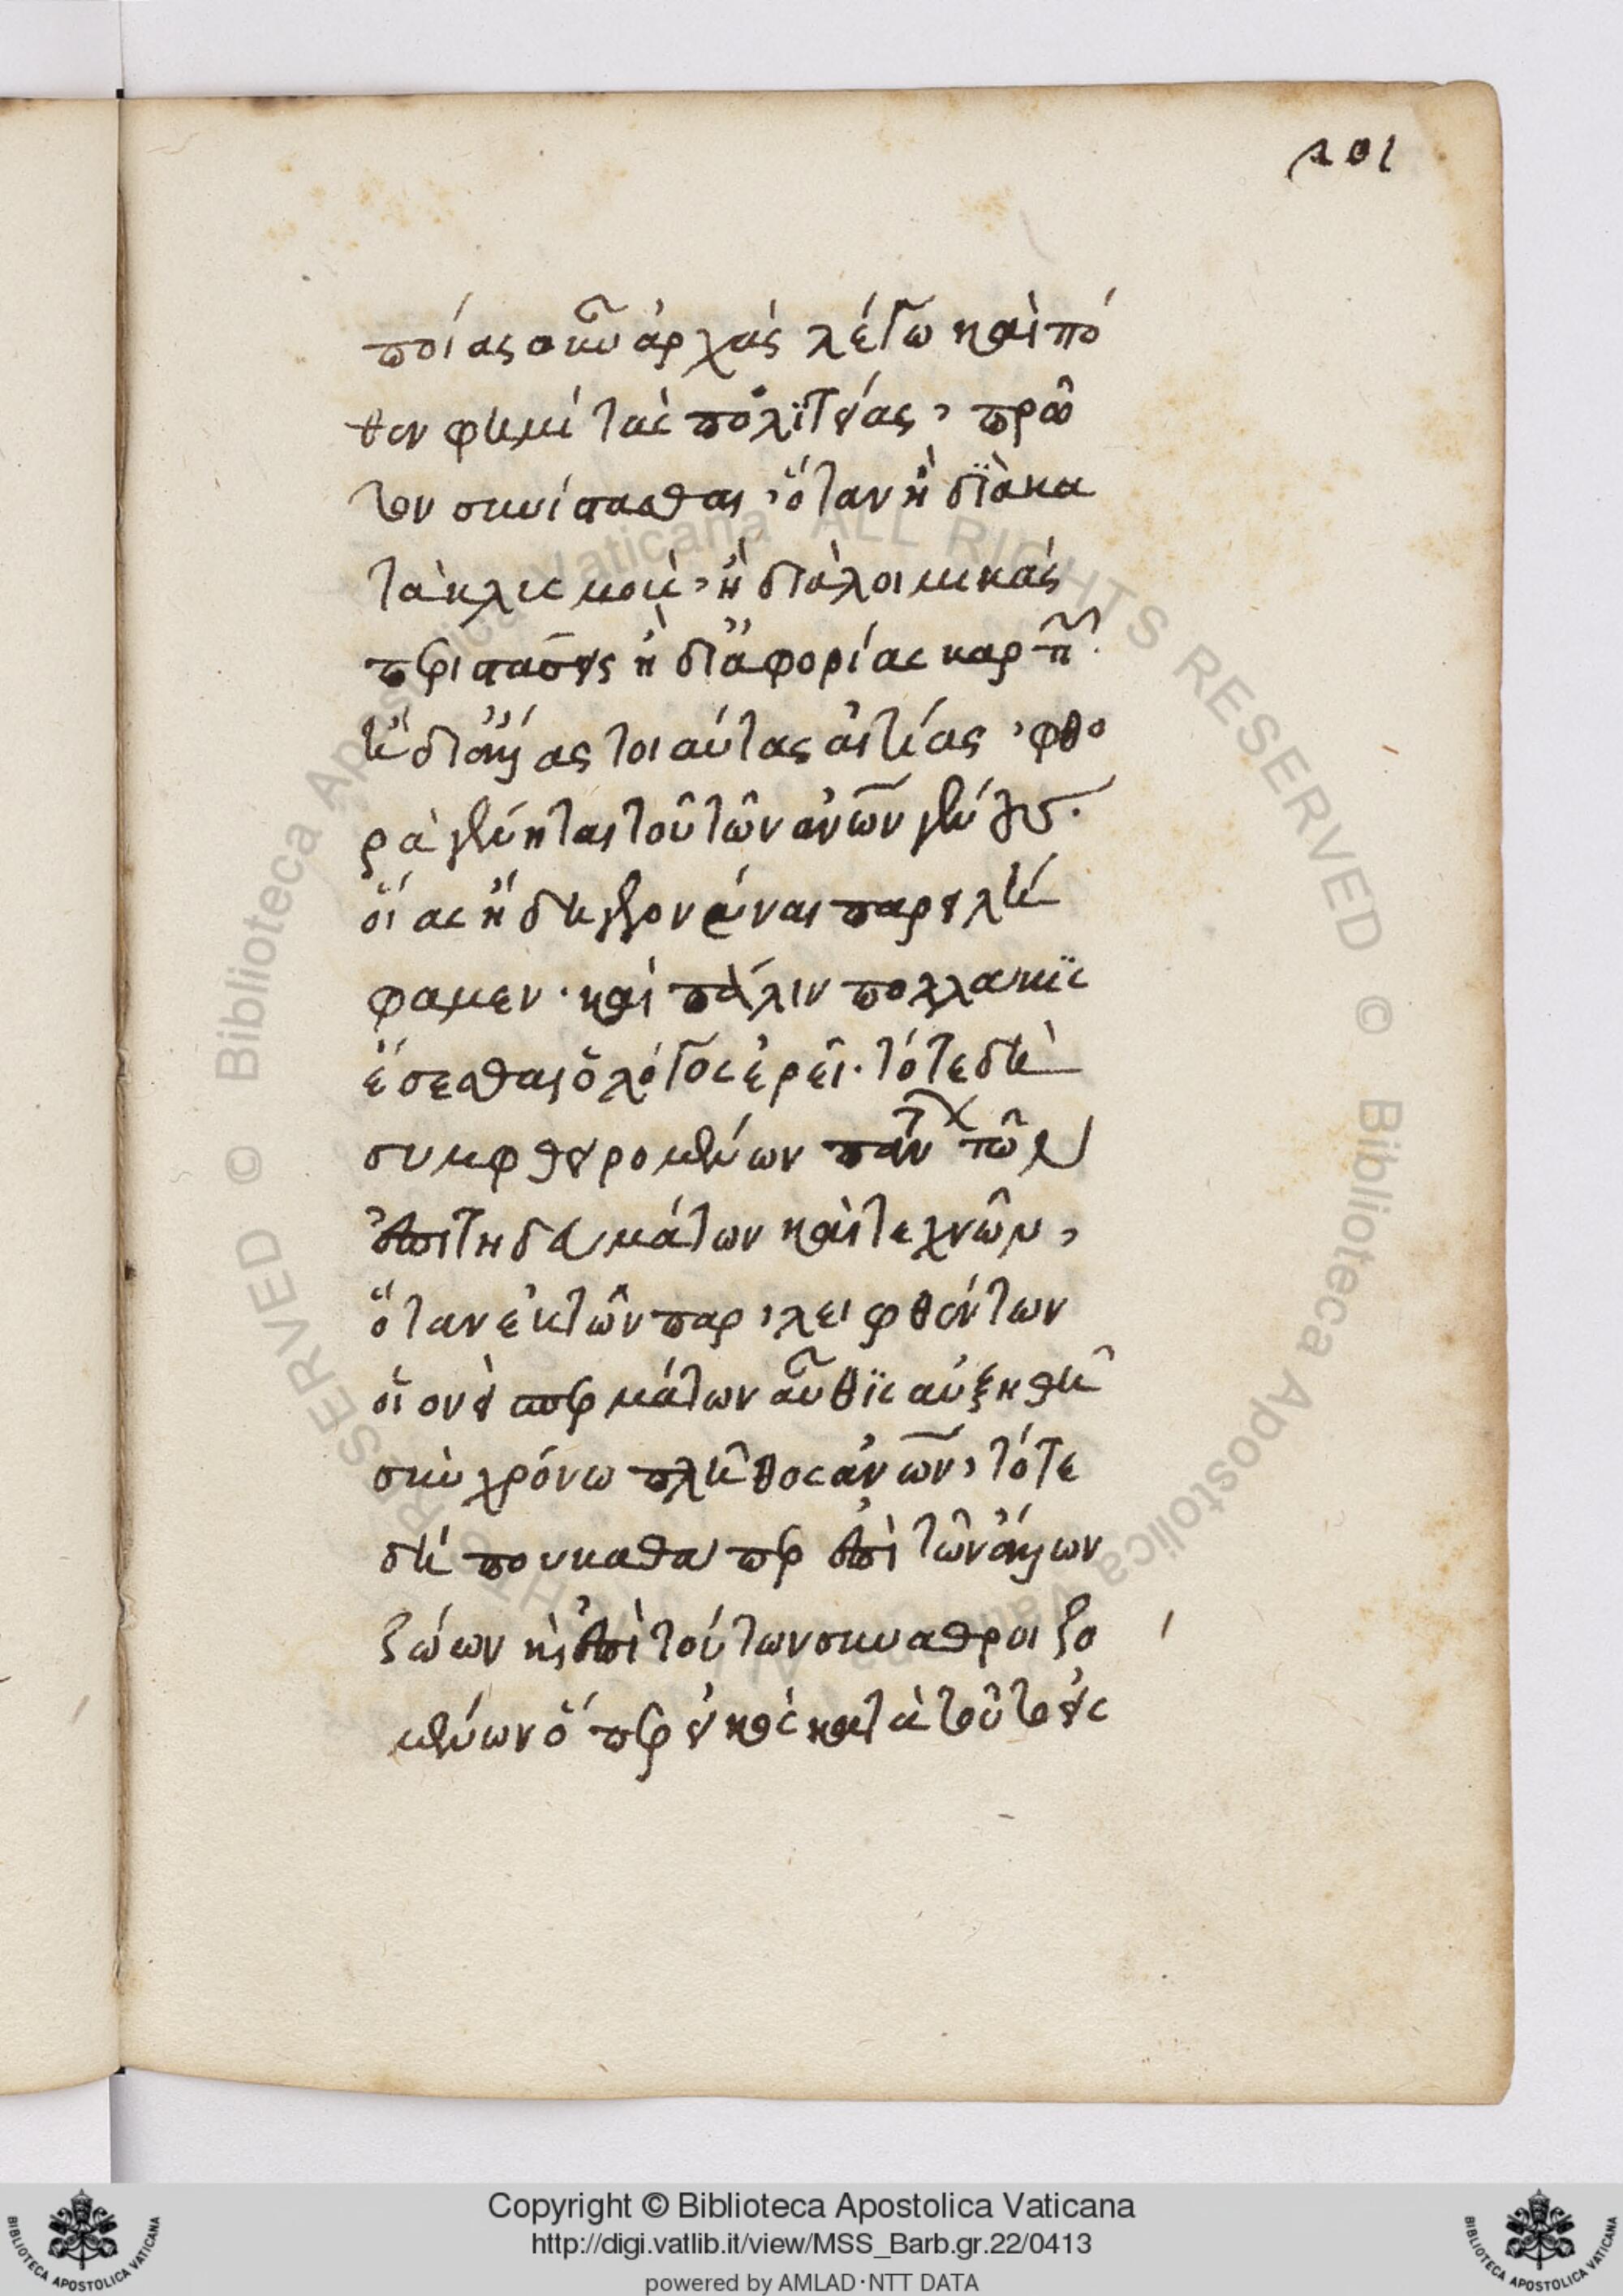 201
ποίας οὖν ἀρχὰς λέγω καὶ πό
θεν φημὶ τὰς πολιτείας, πρῶ
τον συνίστασθαι, ὅταν ἢ διὰ κα
τακλυσμοὺς, ἢ διὰ λοιμικὰς
περιστάσεις ἢ δι' ἀφορίας καρπῶν
ἢ δι' ἄλλας τοιαύτας αἰτίας, φθο
ρὰ γένηται τοῦ τῶν ἀνων γένους.
οἵας ἤδη γεγονέναι παρειλή
φαμεν. καὶ πάλιν πολλάκις
ἔσεσθαι ὁ λόγος ἐρεῖ. τότε δὴ
συμφθειρομένων πάντων τῶν
ἐπιτηδευμάτων καὶ τεχνῶν,
ὅταν ἐκ τῶν παριλειφθέντων
οἱονεὶ σπερμάτων αὖθις αὐξηθῆ
σὺν χρόνω πλῆθος ἀνων, τότε
δή που καθάπερ ἐπὶ τῶν ἄλλων
ζώων κὶ ἐπὶ τούτων συναθροιζο
μένων ὅπερ εἰκὸς κατὰ τοῦτο εἰς
Copyright © Biblioteca Apostolica Vaticana
http://digi.vatlib.it/view/MSS_Barb.gr.22/0413
powered by AMLAD·NTT DATA
© Biblioteca Apostolica Vaticana ALL RIGHTS RESERVED © Biblioteca Apostolica Vaticana ALL RIGHTS RESERVED
BIBLIOTECA APOSTOLICA VATICANA
BIBLIOTECA APOSTOLICA VATICANA